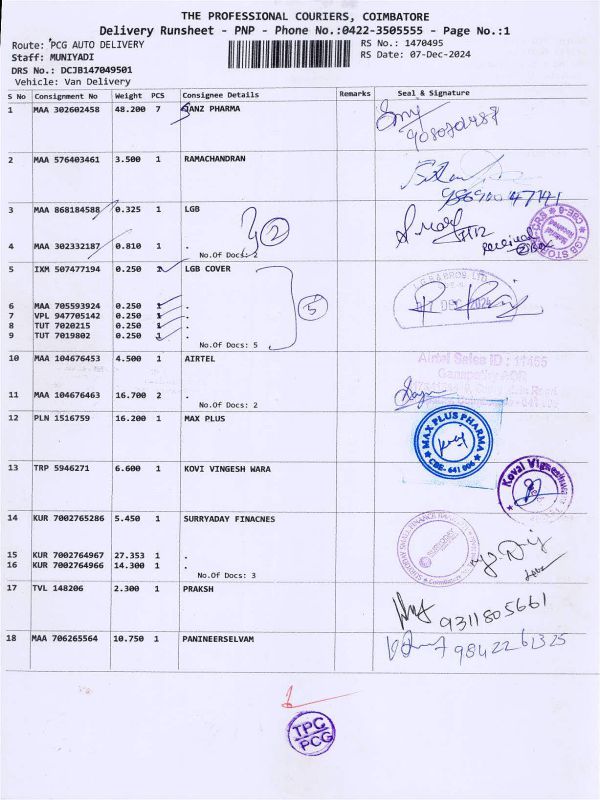 THE PROFESSIONAL COURIERS, COIMBATORE
Delivery Runsheet - PNP - Phone No.:0422-3505555 - Page No.:1
Route: PCG AUTO DELIVERY RS No.: 1470495
Staff: MUNIYADI RS Date: 07-Dec-2024
DRS No.: DCJB147049501
Vehicle: Van Delivery
S No Consignment No Weight PCS Consignee Details Remarks Seal & Signature
1 MAA 302602458 48.200 7 JANZ PHARMA
2 MAA 576403461 3.500 1 RAMACHANDRAN
3 MAA 868184588 0.325 1 LGB
4 MAA 302332187 0.810 1 .
No.Of Docs: 2
2
5 IXM 507477194 0.250 1 LGB COVER
6 MAA 705593924 0.250 1 .
7 VPL 947705142 0.250 1 .
8 TUT 7020215 0.250 1 .
9 TUT 7019802 0.250 1 .
No.Of Docs: 5
5
10 MAA 104676453 4.500 1 AIRTEL
Airtel Sales ID : 11465
11 MAA 104676463 16.700 2 .
No.Of Docs: 2
12 PLN 1516759 16.200 1 MAX PLUS
MAX PLUS PHARMA
CBE- 641 006
13 TRP 5946271 6.600 1 KOVI VINGESH WARA
14 KUR 7002765286 5.450 1 SURRYADAY FINACNES
15 KUR 7002764967 27.353 1 .
16 KUR 7002764966 14.300 1 .
No.Of Docs: 3
17 TVL 148206 2.300 1 PRAKSH
9311805661
18 MAA 706265564 10.750 1 PANINEERSELVAM
TPC
PCG